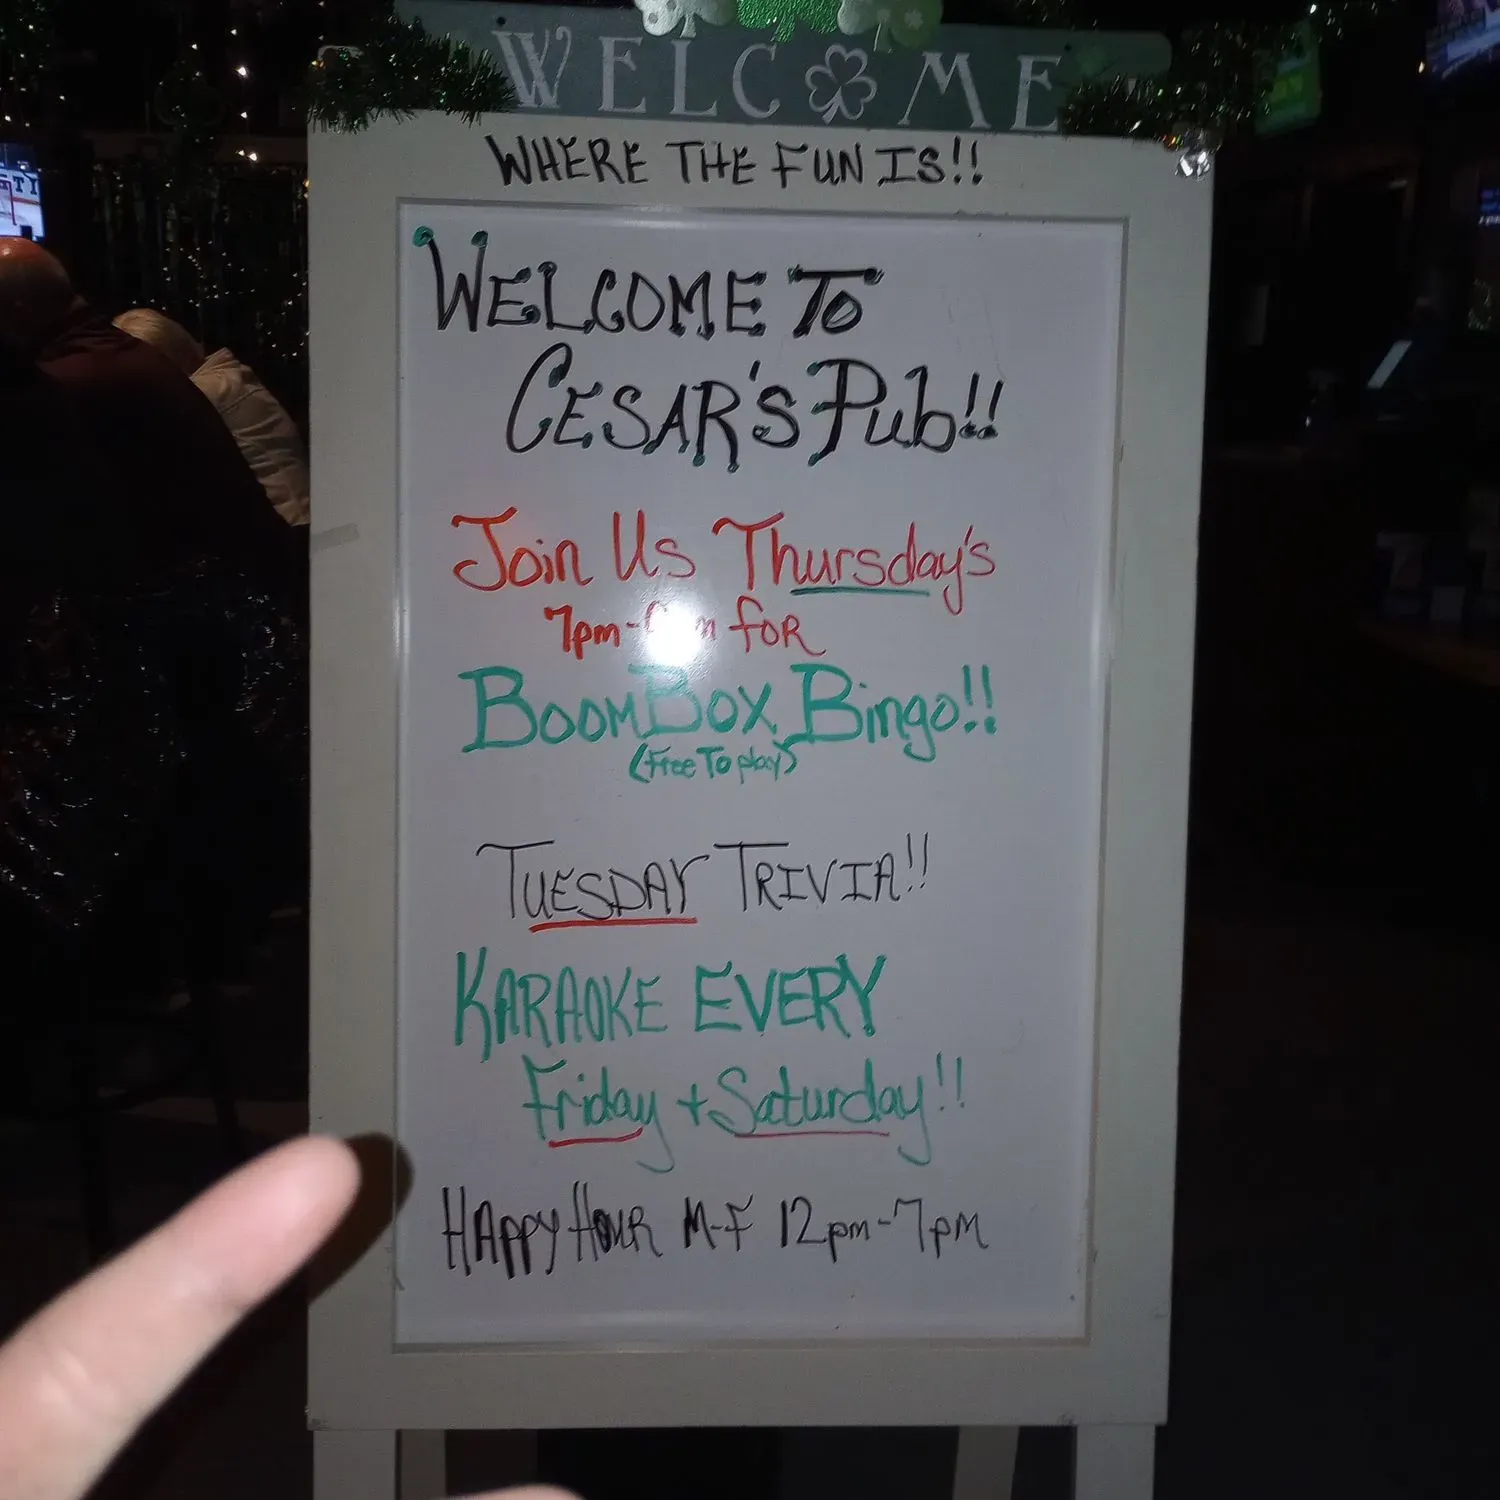 WELCOME
WHERE THE FUN IS!!
WELCOME TO
CESAR'S Pub!!
Join Us Thursday's
7pm- FOR
BOOMBOX Bingo!!
(Free To play)
TUESDAY TRIVIA!!
KARAOKE EVERY
Friday + Saturday!!
HAPPY HOUR M-F 12pm-7pm